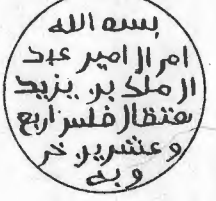 بسم الله
امر الامير عبد
الملك بن يزيد
مثقال فلس اربع
وعشرين خر
وبه